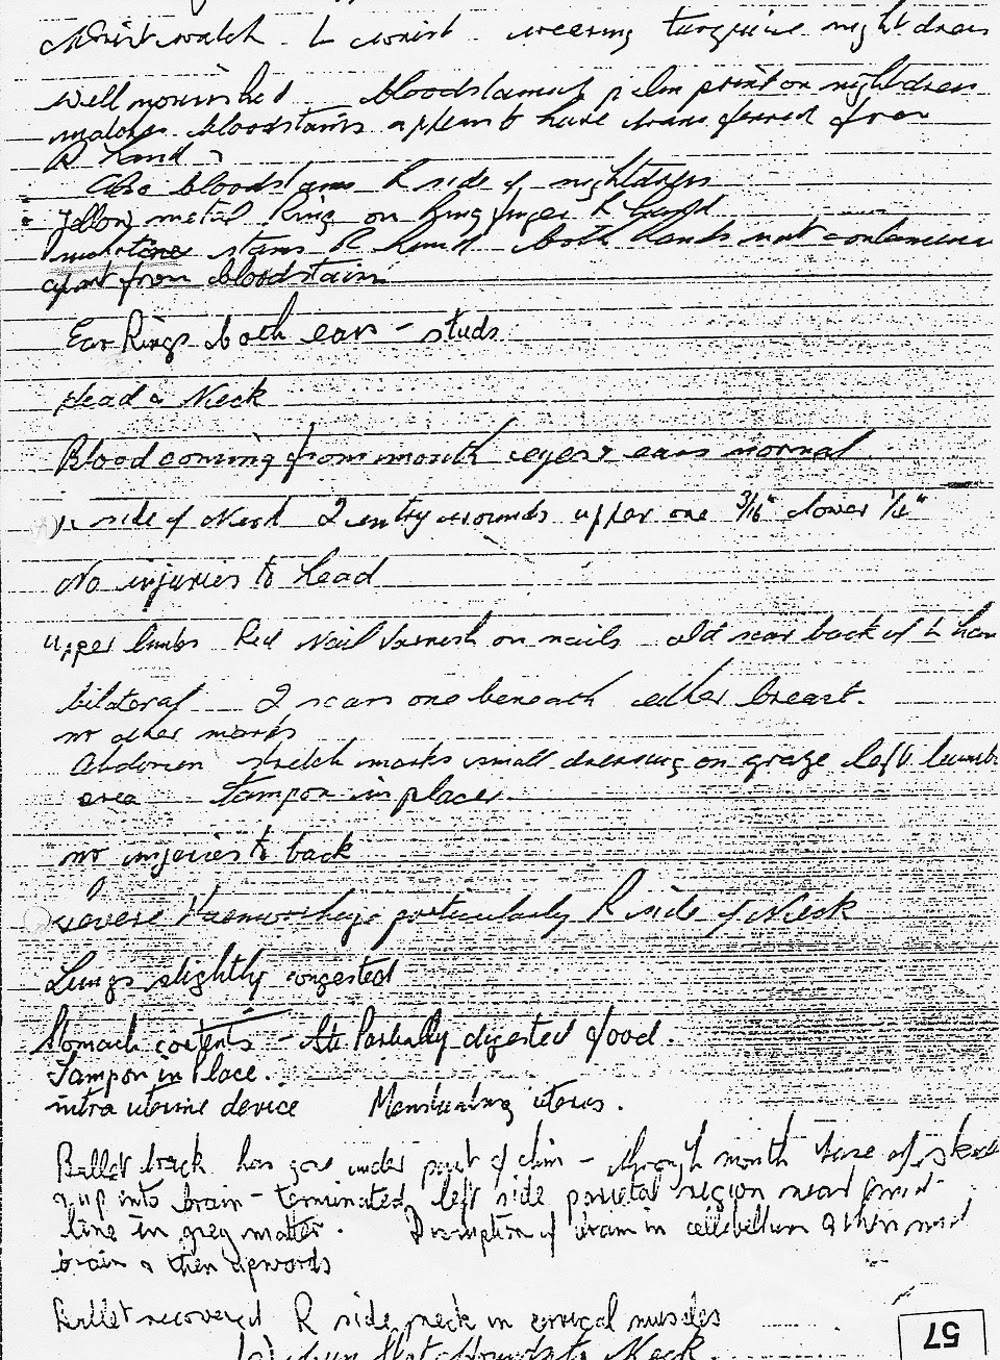 Wrist watch - L wrist. wearing turquoise nightdress
Well nourished bloodstained palm print on nightdress
bloodstains appears to have been transferred from
R hand
Also bloodstains R side of nightdress
Yellow metal Ring on Ring finger R hand
stains R hand both hands not
apart from bloodstain
Ear Rings both ears - studs
Head & Neck
Blood coming from mouth eyes & ears normal
R side of Neck 2 entry wounds upper one 3/16" lower
No injuries to head
Upper limbs Red Nail Varnish on nails old scar back of L han
bilateral 2 scars one beneath either breast.
no other marks
Abdomen stretch marks small dressing on graze left lumb
area tampon in place.
no injuries to back
severe Haemorrhage particularly R side of Neck
Lungs slightly congested
Stomach contents - Partially digested food.
Tampon in Place.
intra uterine device Menstruating uterus.
Bullet track has gone under part of chin - through mouth base of
& up into brain - terminated left side parietal region near mid-
line in grey matter. Disruption of brain in cellebellum & then mid
brain & then upwords
Bullet recovered R side neck in cervical muscles
Gun Shot Wounds to Neck.
57